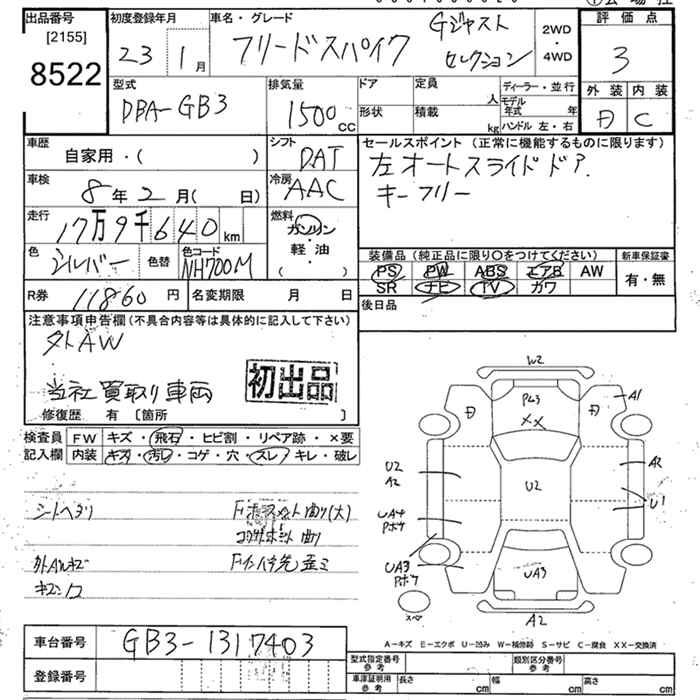 出品番号 初度登録年月 車名・グレード Gジャスト 2WD 評価点
[2155] 23 1月 フリードスパイク セレクション ・4WD 3
8522 型式 排気量 ドア 定員 人 ディーラー・並行 外装 内装
DBA-GB3 1500cc 形状 積載 kg モデル年式 年 C
ハンドル 左・右
車歴 シフト セールスポイント (正常に機能するものに限ります)
自家用・( ) DAT 左オートスライドドア.
車検 冷房 キーフリー
8年2月( 日) AAC
走行 燃料
17万9千640km ガソリン・軽油
色 色替 色コード ( ) 装備品 (純正品に限り○をつけてください) 新車保証書
シルバー NH700M PS PW ABS エアB AW 有・無
SR ナビ TV カワ
R券 11860円 名変期限 月 日 後日品
注意事項申告欄(不具合内容等は具体的に記入して下さい)
外AW
当社買取り車両 初出品
修復歴 有 〔箇所 〕
検査員 FW キズ・飛石・ヒビ割・リペア跡・×要
記入欄 内装 キズ・汚レ・コゲ・穴・スレ・キレ・破レ
シートヘタリ
W2
A1
XX
U2
A2
A2
U2
U1
UA4
ポケ
UA3
ポケ
UA3
スペ
A2
車台番号 GB3-1317403
登録番号
A=キズ E=エクボ U=凹み W=補修跡 S=サビ C=腐食 XX=交換済
型式指定番号 参考 類別区分番号 参考
車庫証明用 参考 長さ cm 幅 cm 高さ cm